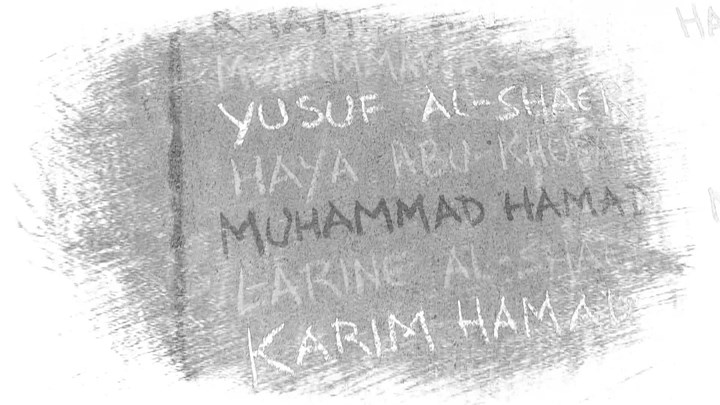 HA
YUSUF AL-SHAER
HAYA ABU KHOUSA
MUHAMMAD HAMAD
LARINE AL-SHAE
KARIM HAMAD